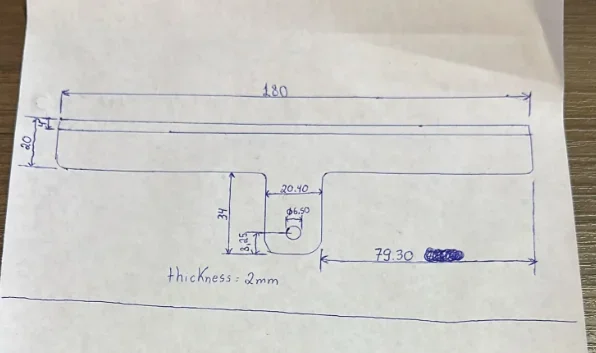 180
20
20.40
ϕ6.50
34
8,25
79.30
thickness: 2mm